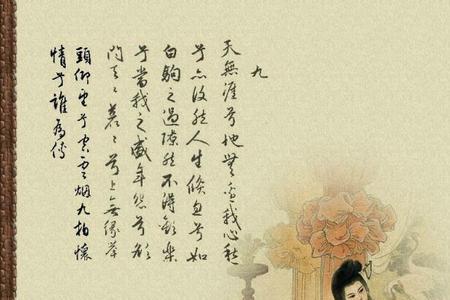 九
天無涯兮地無邊我心愁
兮亦復然人生倏忽兮如
白駒之過隙然不得歡樂
兮當我之盛年怨兮欲
問天天蒼蒼兮上無緣舉
頭仰望兮空雲烟九拍懷
情兮誰為傳